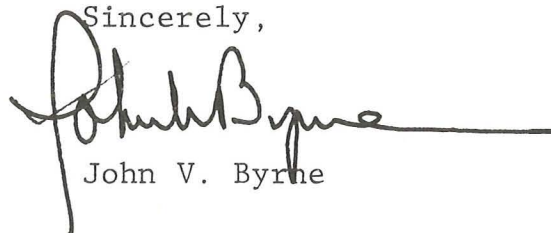 Sincerely,
John V. Byrne
John V. Byrne